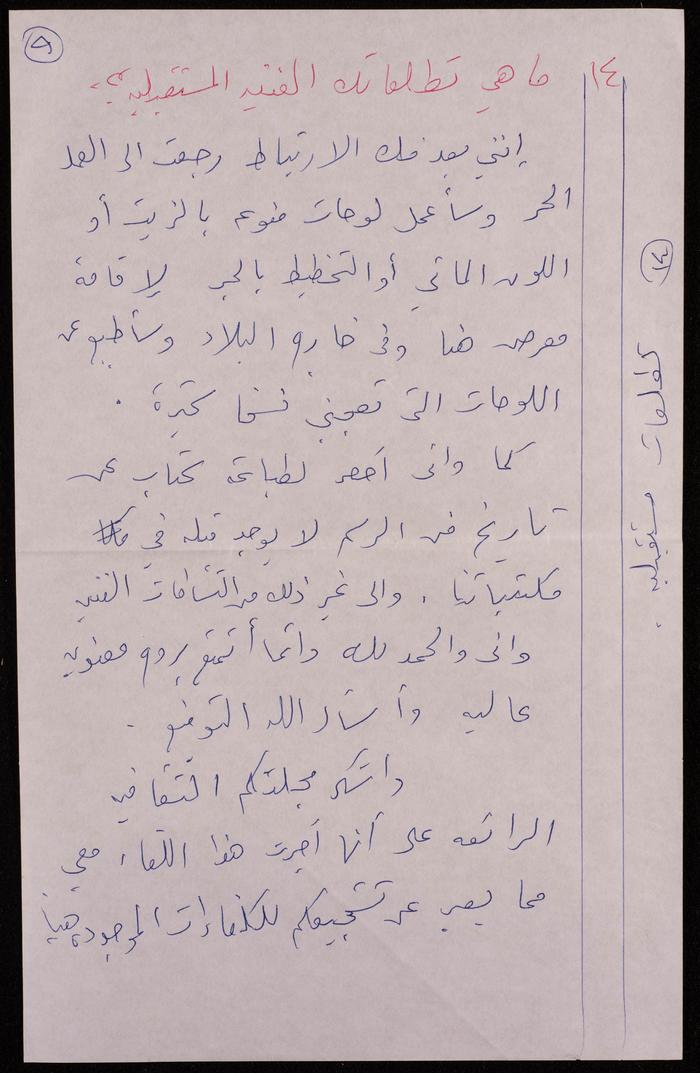 ٩
١٤ ما هي تطلعاتك الفنيه المستقبليه؟
إنني بعد فك الارتباط رجعت الى العمل
الحر وسأعمل لوحات منوعه بالزيت أو
اللون المائي أو التخطيط بالحبر لإقامة
معرض هنا وفي خارج البلاد وسأطبع من
اللوحات التي تعجبني نسخا كثيرة .
كما واني أحضر لطباعة كتاب عن
تاريخ فن الرسم لا يوجد مثله في
مكتباتنا . والى غير ذلك من النشاطات الفنيه
واني والحمد لله دائما أتمتع بروح معنويه
عاليه وأسأل الله التوفيق .
وأشكر مجلتكم الثقافيه
الرائعه على أنها أجرت هذا اللقاء معي
مما يعبر عن تشجيعكم للكفاءات الموجوده هنا
١٤
تطلعات مستقبليه .